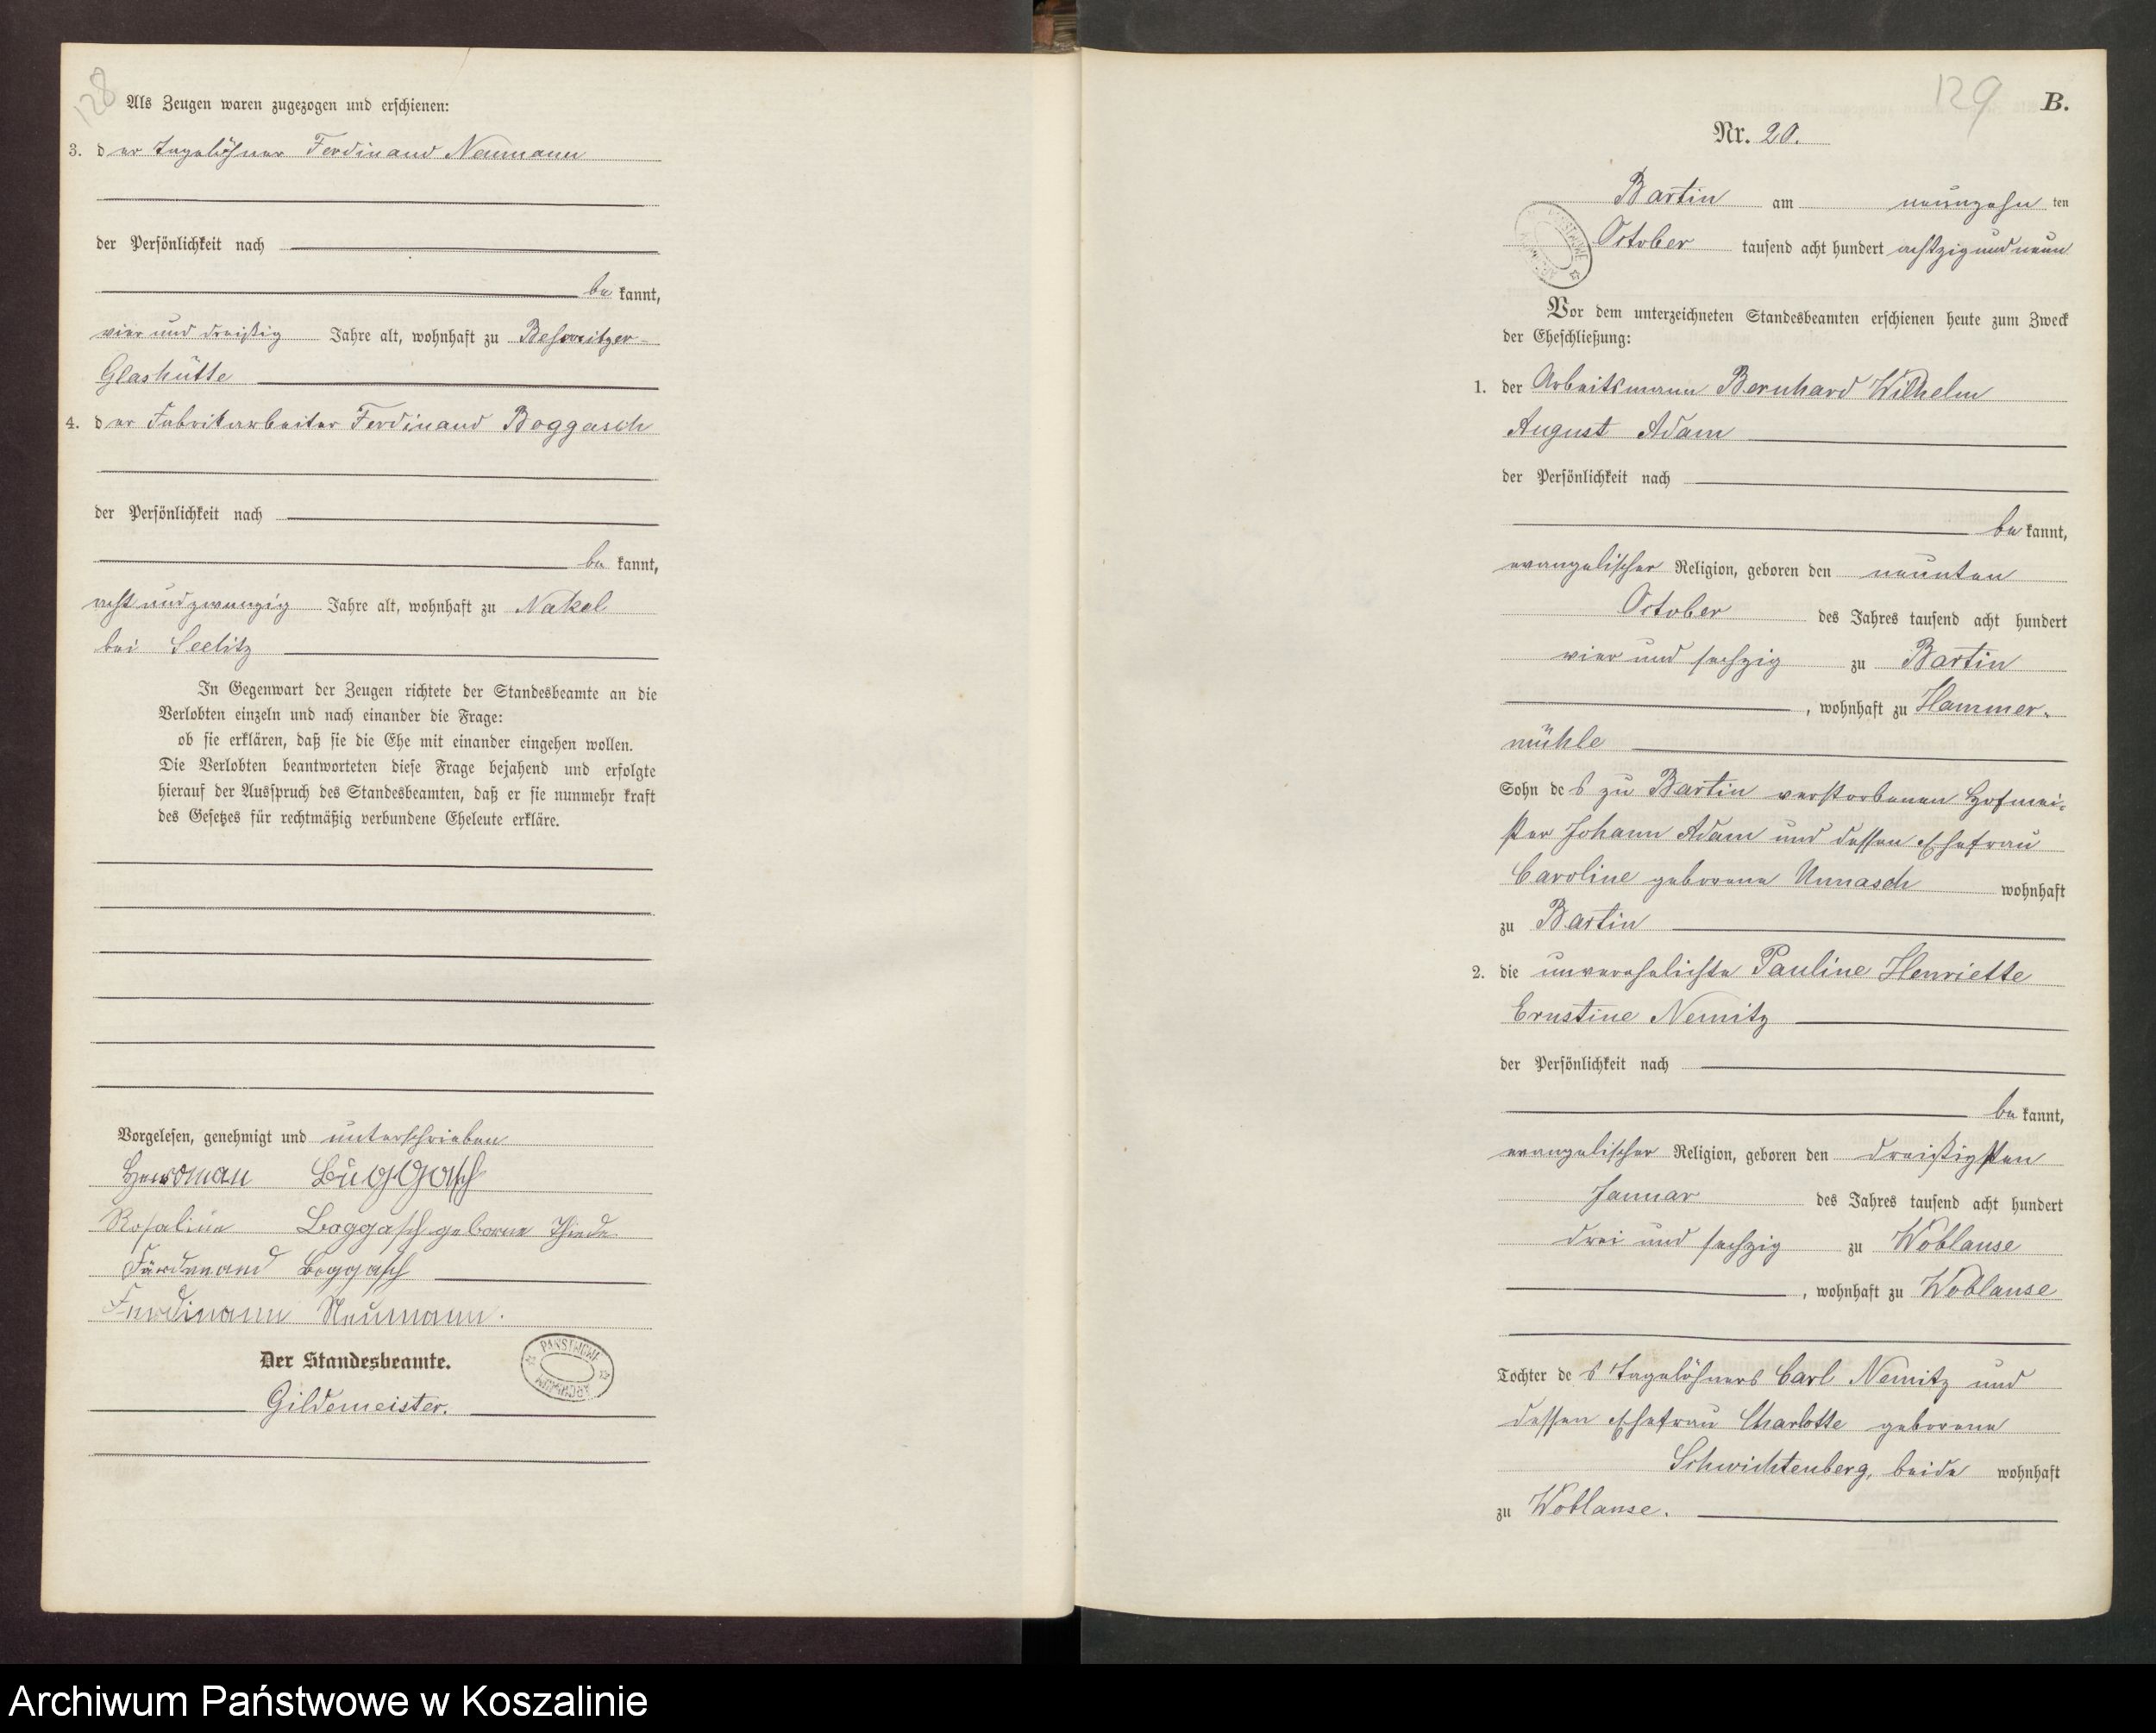 128
Als Zeugen waren zugezogen und erschienen:
3. der Tagelöhner Ferdinand Neumann
der Persönlichkeit nach
be kannt,
vier und dreißig Jahre alt, wohnhaft zu Beßwitzer-
Glashütte
4. der Fabrikarbeiter Ferdinand Boggasch
der Persönlichkeit nach
be kannt,
acht und zwanzig Jahre alt, wohnhaft zu Nakel
bei Seelitz
In Gegenwart der Zeugen richtete der Standesbeamte an die
Verlobten einzeln und nach einander die Frage:
ob sie erklären, daß sie die Ehe mit einander eingehen wollen.
Die Verlobten beantworteten diese Frage bejahend und erfolgte
hierauf der Ausspruch des Standesbeamten, daß er sie nunmehr kraft
des Gesetzes für rechtmäßig verbundene Eheleute erkläre.
Vorgelesen, genehmigt und unterschrieben
Herrman Buggasch
Rosaline Boggasch geborne Thiede
Ferdinand Boggasch
Ferdinann Neumann.
Der Standesbeamte.
Gildemeister.
ARCHIWUM PAŃSTWOWE
129
B.
Nr. 20.
Bartin am neunzehn ten
October tausend acht hundert achtzig und neun
Vor dem unterzeichneten Standesbeamten erschienen heute zum Zweck
der Eheschließung:
1. der Arbeitsmann Bernhard Wilhelm
August Adam
der Persönlichkeit nach
be kannt,
evangelischer Religion, geboren den neunten
October des Jahres tausend acht hundert
vier und sechzig zu Bartin
, wohnhaft zu Hammer-
mühle
Sohn des zu Bartin verstorbenen Hofmei-
ster Johann Adam und dessen Ehefrau
Caroline geborene Unnasch wohnhaft
zu Bartin
2. die unverehelichte Pauline Henriette
Ernstine Nemitz
der Persönlichkeit nach
be kannt,
evangelischer Religion, geboren den dreißigsten
Januar des Jahres tausend acht hundert
drei und sechzig zu Woblanse
, wohnhaft zu Woblanse
Tochter des Tagelöhners Carl Nemitz und
dessen Ehefrau Charlotte geborene
Schwichtenberg, beide wohnhaft
zu Woblanse.
Archiwum Państwowe w Koszalinie